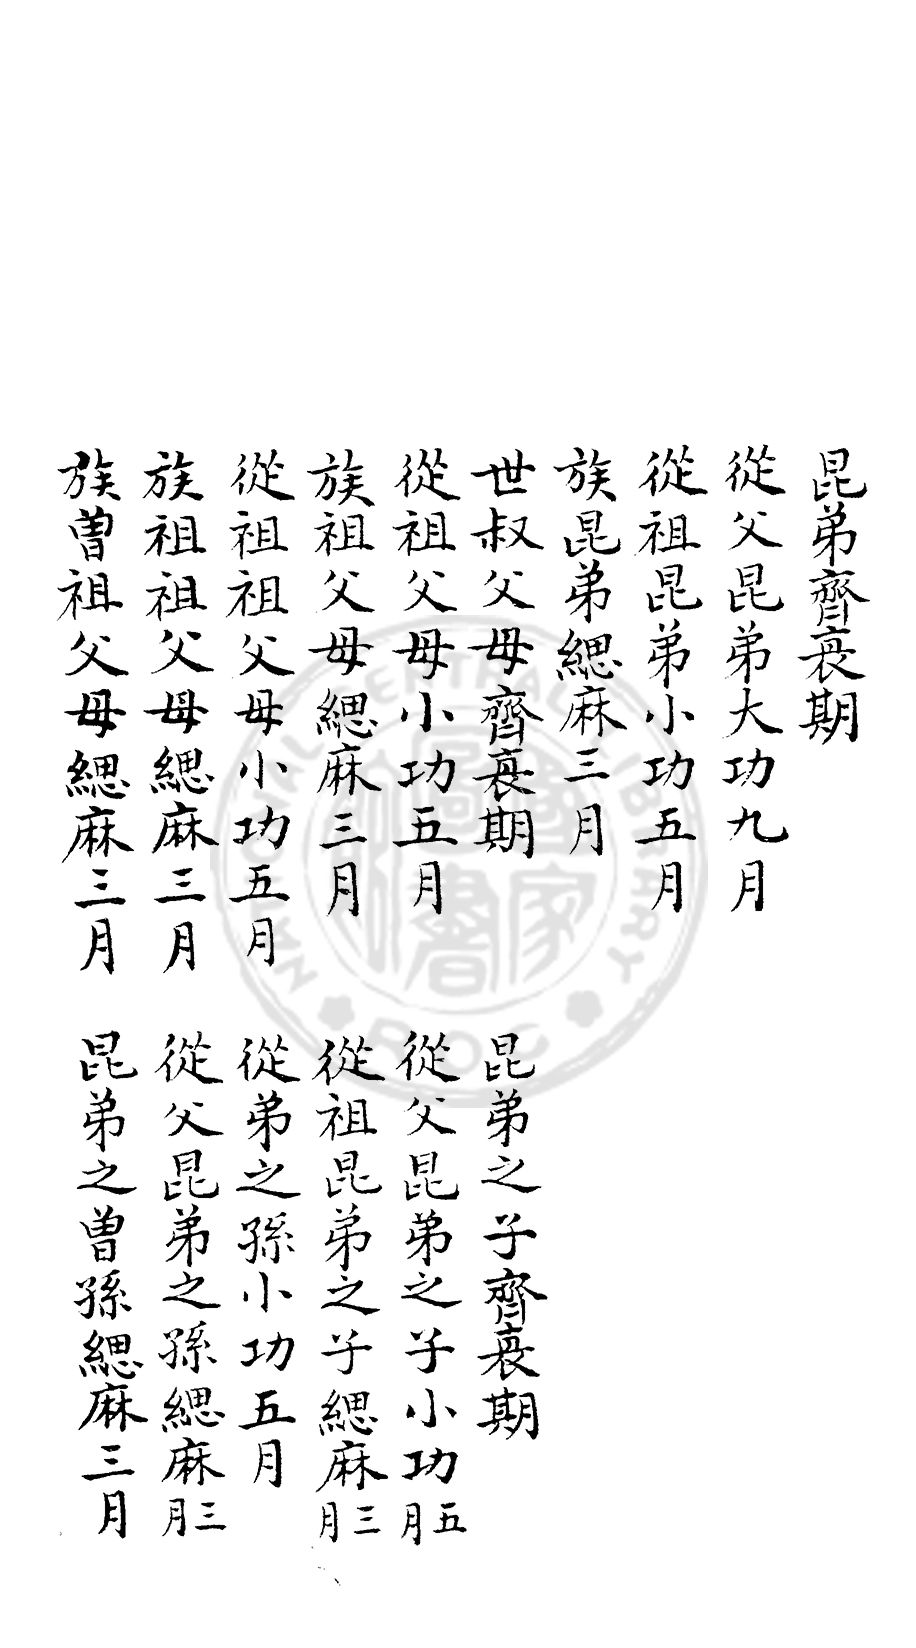 昆弟齊衰期
從父昆弟大功九月
從祖昆弟小功五月
族昆弟緦麻三月
世叔父母齊衰期　昆弟之子齊衰期
從祖父母小功五月　從父昆弟之子小功五月
族祖父母緦麻三月　從祖昆弟之子緦麻三月
從祖祖父母小功五月　從弟之孫小功五月
族祖祖父母緦麻三月　從父昆弟之孫緦麻三月
族曾祖父母緦麻三月　昆弟之曾孫緦麻三月
NATIONAL CENTRAL LIBRARY
ROC
國家圖書館